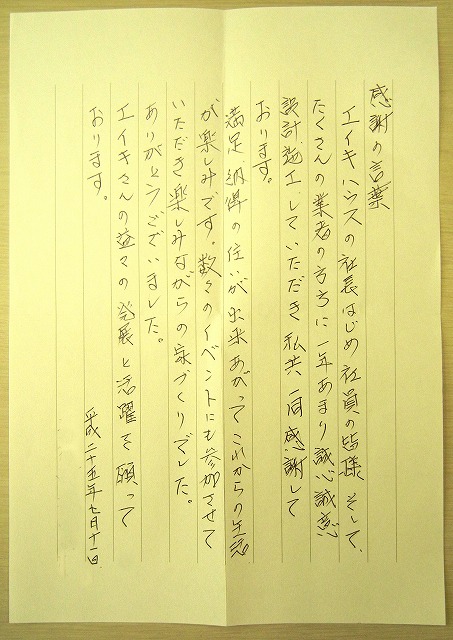 感謝の言葉
エイキハウスの社長はじめ社員の皆様、そして、
たくさんの業者の方々に一年あまり誠心誠意
設計、施工、していただき私共一同感謝して
おります。
満足、納得の住いが出来あがってこれからの生活
が楽しみです。数々のイベントにも参加させて
いただき楽しみながらの家づくりでした。
ありがとうございました。
エイキさんの益々の発展と活躍を願って
おります。
平成二十五年七月十一日